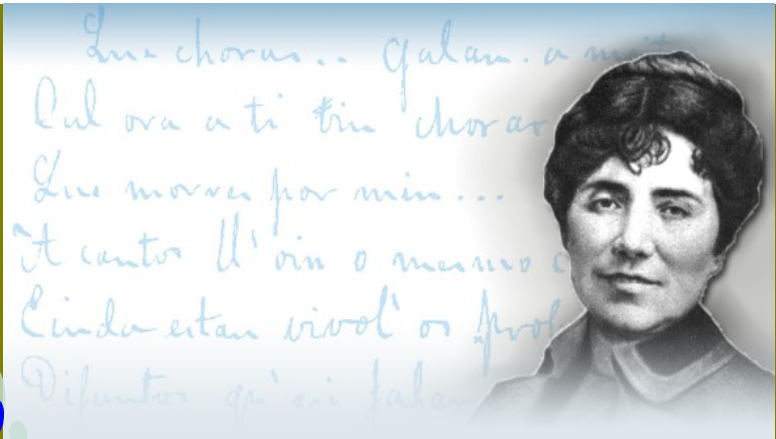 Que choras.. galan. a moit
Cal ora a ti vin chorar
Que morres por min...
A cantos ll' oin o mesmo
Einda estan vivol' os prob
Difuntos qu' oin falar